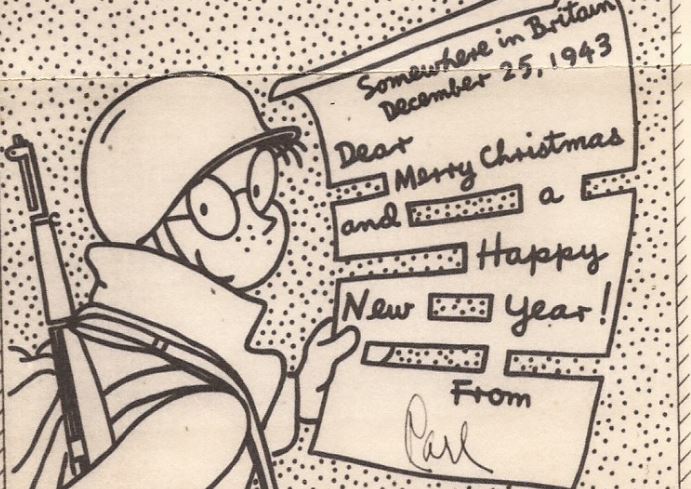 Somewhere in Britain
December 25, 1943
Dear
Merry Christmas
and a
Happy
New Year!
From
Carl